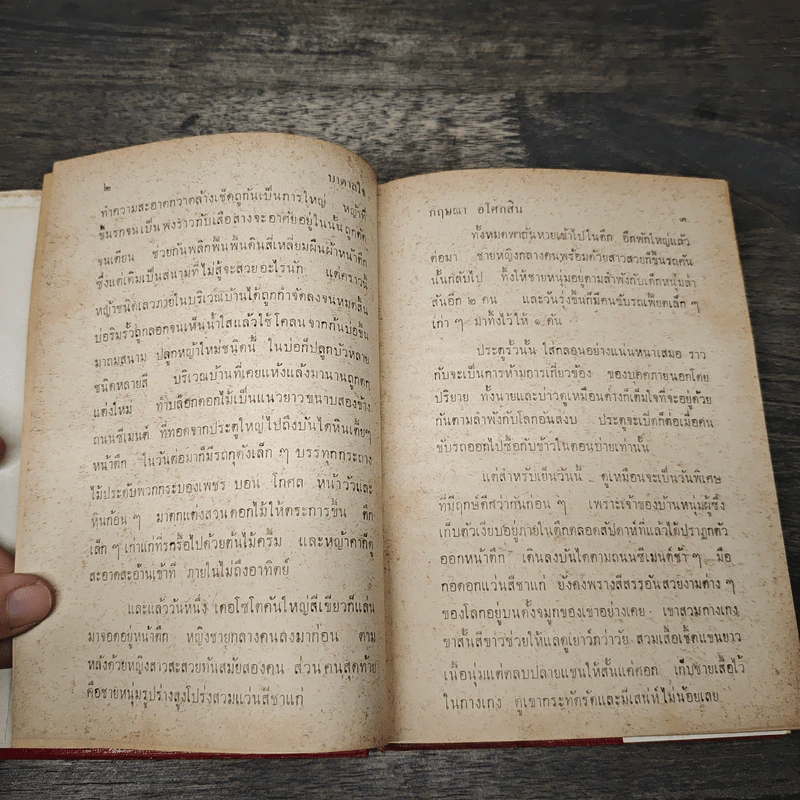 ๒ บาดาลใจ
ทำความสะอาดกวาดล้างเช็ดถูกันเป็นการใหญ่ หญ้าที่
ขึ้นรกจนเป็นพงราวกับเสือสางจะอาศัยอยู่ในนั้นถูกตัด
จนเตียน ช่วยกันพลิกฟื้นพื้นดินสี่เหลี่ยมผืนผ้าหน้าตึก
ซึ่งแต่เดิมเป็นสนามที่ไม่สู้จะสวยอะไรนัก แต่คราวนี้
หญ้าชนิดเลวภายในบริเวณบ้านได้ถูกกำจัดลงจนหมดสิ้น
บ่อริมรั้วถูกลอกจนเห็นน้ำใสแล้วใช้โคลนจากก้นบ่อขึ้น
มาถมสนาม ปลูกหญ้าใหม่ชนิดนี้ ในบ่อก็ปลูกบัวหลาย
ชนิดหลายสี บริเวณบ้านที่เคยแห้งแล้งมานานถูกตก
แต่งใหม่ ทำบล็อกดอกไม้เป็นแนวยาวขนาบสองข้าง
ถนนซีเมนต์ ที่ทอดจากประตูใหญ่ไปถึงบันไดหินเตี้ยๆ
หน้าตึก ในวันต่อมาก็มีรถกุดังเล็ก ๆ บรรทุกกระถาง
ไม้ประดับพวกกระบองเพชร บอน โกศล หน้าวัวและ
หินก้อน ๆ มาตกแต่งสวนดอกไม้ให้ตระการขึ้น ตึก
เล็ก ๆ เก่าแก่ที่รกรื้อไปด้วยต้นไม้ครึ้ม และหญ้าคาก็ดู
สะอาดสะอ้านเข้าที ภายในไม่ถึงอาทิตย์
และแล้ววันหนึ่ง เดอโซโตคันใหญ่สีเขียวก็แล่น
มาจอดอยู่หน้าตึก หญิงชายกลางคนลงมาก่อน ตาม
หลังด้วยหญิงสาวสะสวยทันสมัยสองคน ส่วนคนสุดท้าย
คือชายหนุ่มรูปร่างสูงโปร่งสวมแว่นสีชาแก่
กฤษณา อโศกสิน ๓
ทั้งหมดพากันหายเข้าไปในตึก อีกพักใหญ่แล้ว
ต่อมา ชายหญิงกลางคนพร้อมด้วยสาวสวยก็ขึ้นรถคัน
นั้นกลับไป ทิ้งให้ชายหนุ่มอยู่ตามลำพังกับเด็กหนุ่มล่ำ
สันอีก ๒ คน และวันรุ่งขึ้นก็มีคนขับรถเฟียตเล็ก ๆ
เก่า ๆ มาทิ้งไว้ให้ ๑ คัน
ประตูรั้วนั้น ใส่กลอนอย่างแน่นหนาเสมอ ราว
กับจะเป็นการห้ามการเกี่ยวข้อง ของบุคคลภายนอกโดย
ปริยาย ทั้งนายและบ่าวดูเหมือนต่างก็เต็มใจที่จะอยู่ด้วย
กันตามลำพังกับโลกอันสงบ ประตูจะเปิดก็ต่อเมื่อคน
ขับรถออกไปซื้อกับข้าวในตอนบ่ายเท่านั้น
แต่สำหรับเย็นวันนี้ ดูเหมือนจะเป็นวันพิเศษ
ที่มีฤกษ์ดีสว่ากันก่อน ๆ เพราะเจ้าของบ้านหนุ่มผู้ซึ่ง
เก็บตัวเงียบอยู่ภายในตึกตลอดสัปดาห์ที่แล้วได้ปรากฏตัว
ออกหน้าตึก เดินลงบันไดตามถนนซีเมนต์ช้า ๆ มือ
กอดอกแว่นสีชาแก่ ยังคงพรางสีสรรอันสวยงามต่าง ๆ
ของโลกอยู่บนดั้งจมูกของเขาอย่างเคย เขาสวมกางเกง
ขาสั้นสีขาวช่วยให้แลดูเยาว์กว่าวัย สวมเสื้อเชิ้ตแขนยาว
เนื้อนุ่มแต่ตลบปลายแขนให้สั้นแค่ศอก เก็บชายเสื้อไว้
ในกางเกง ดูเขากระทัดรัดและมีเสน่ห์ไม่น้อยเลย